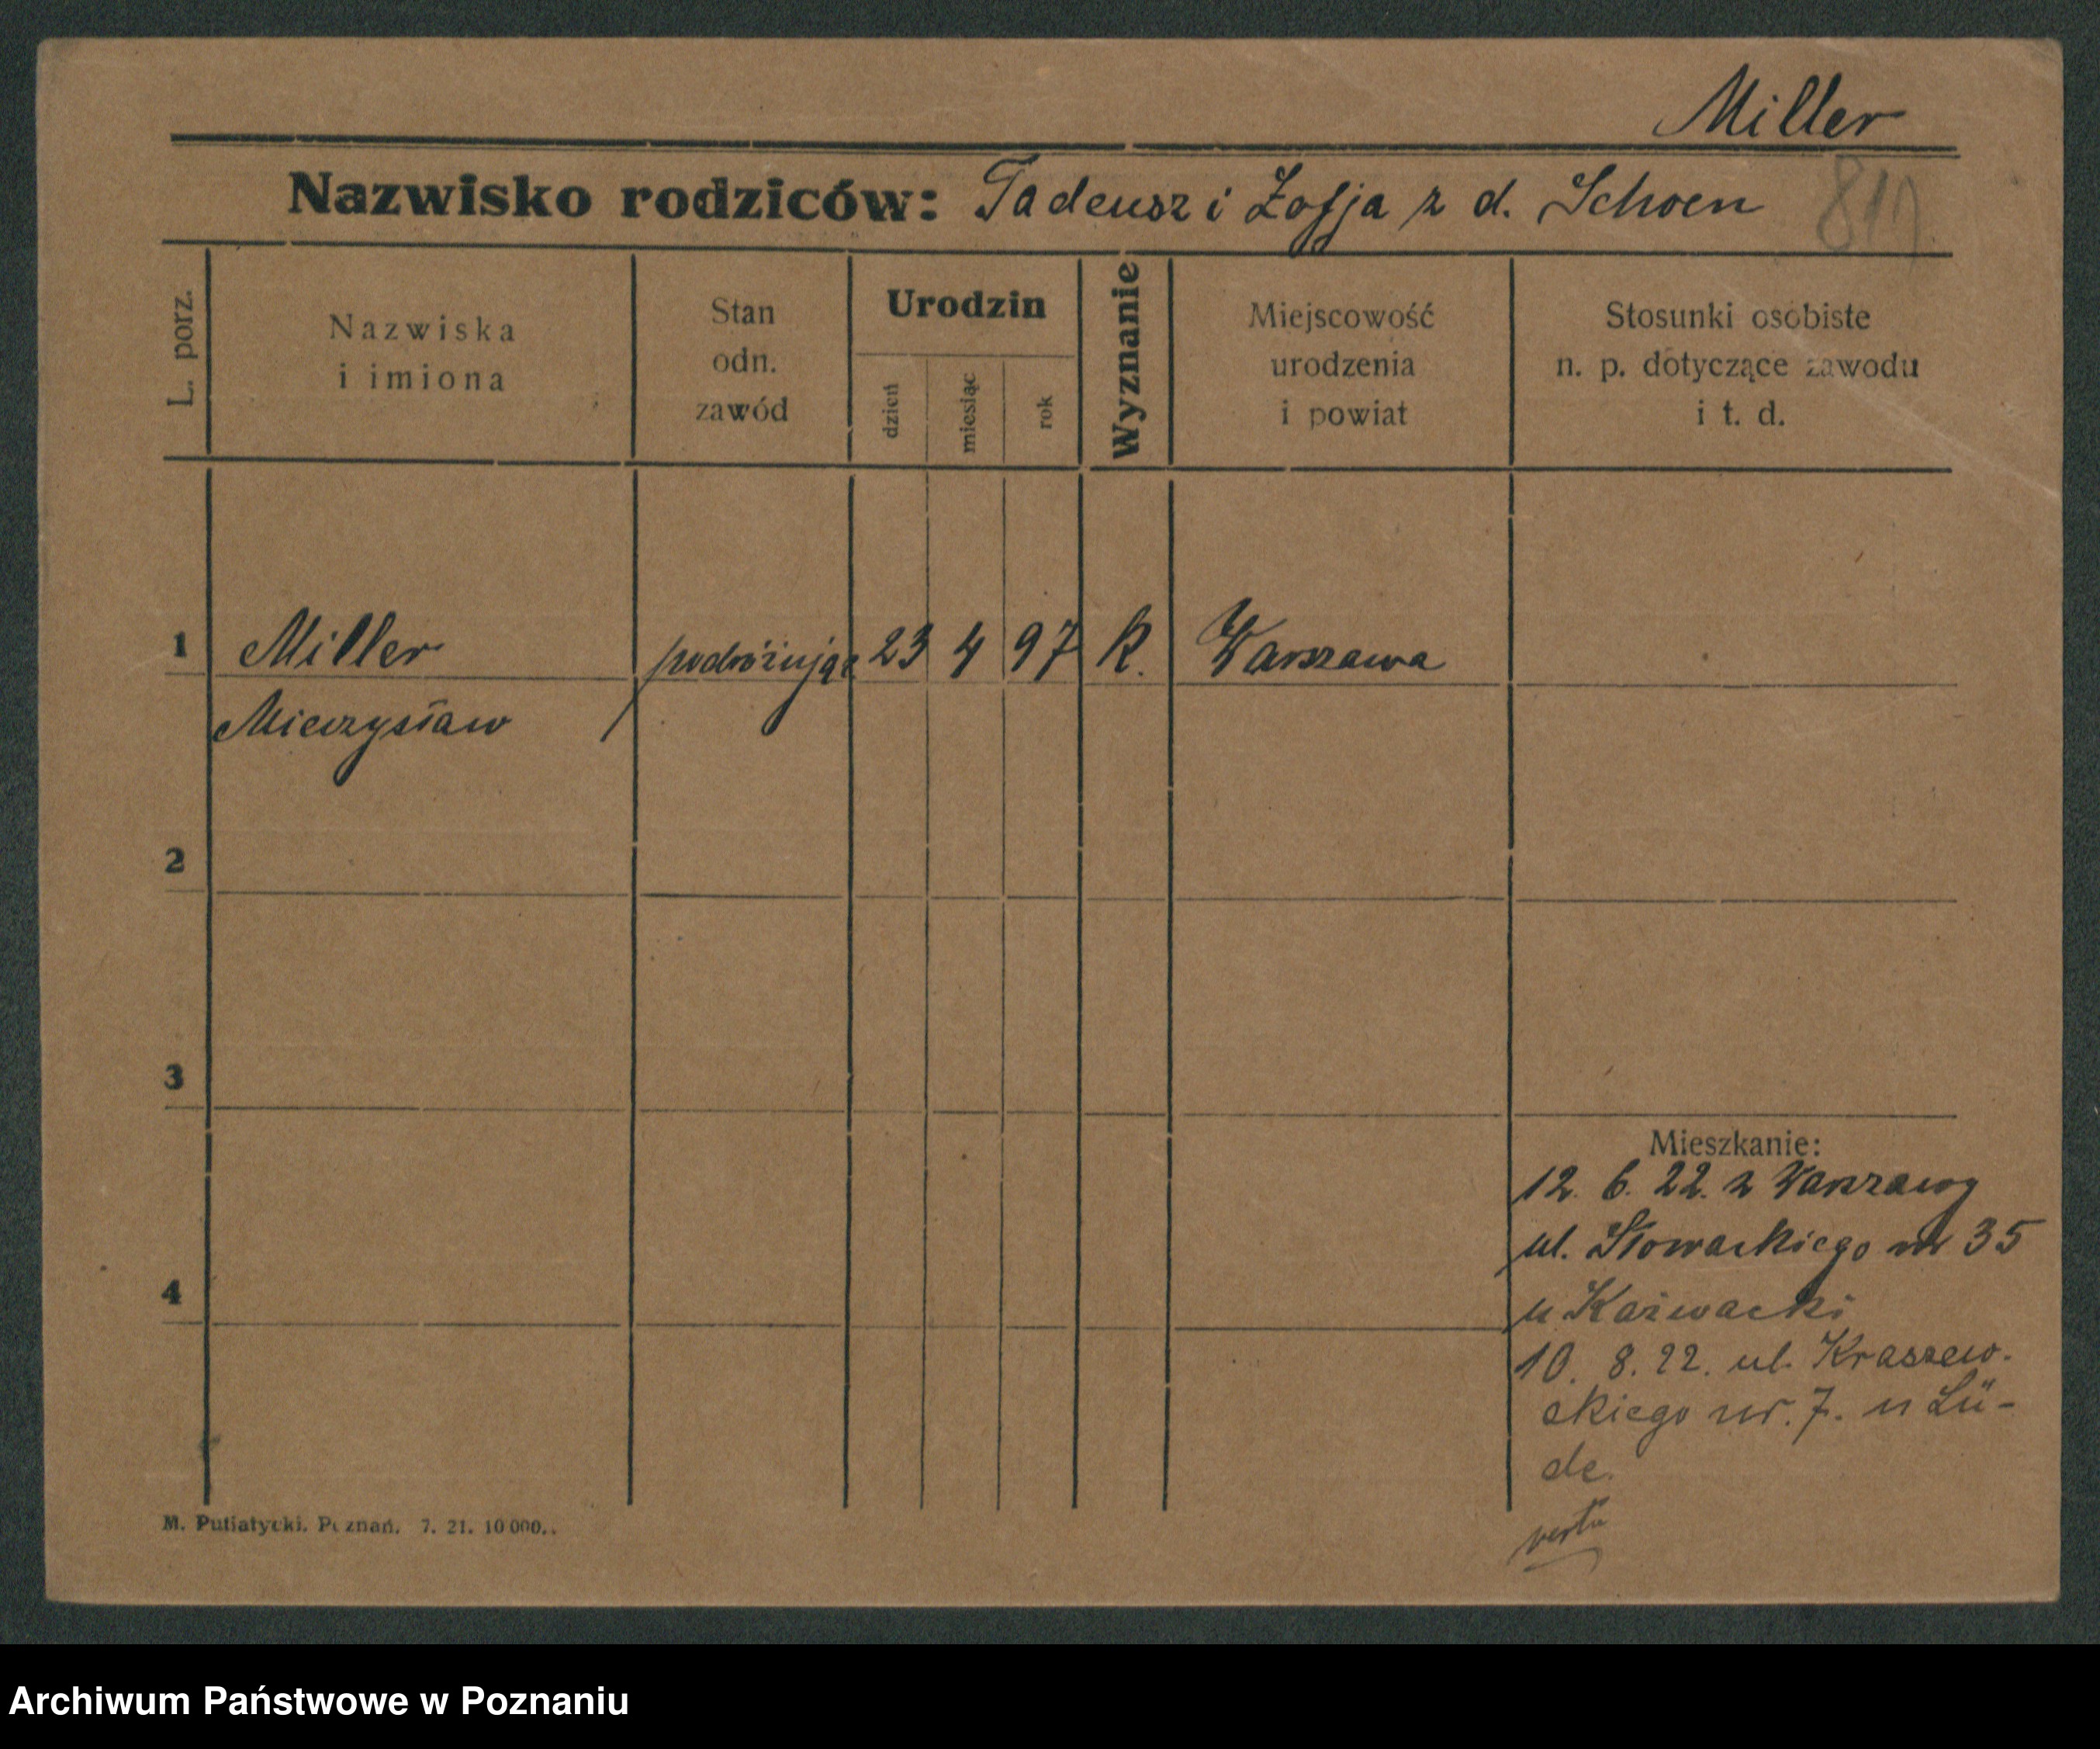 Miller
Nazwisko rodziców: Tadeusz i Zofja z d. Schoen
L. porz.
Nazwiska
i imiona
Stan
odn.
zawód
Urodzin
dzień
miesiąc
rok
Wyznanie
Miejscowość
urodzenia
i powiat
Stosunki osobiste
n. p. dotyczące zawodu
i t. d.
1 Miller podróżując 23 4 97 k. Warszawa
Mieczysław
2
3
Mieszkanie:
12. 6. 22. z Warszawy
ul. Słowackiego nr 35
4
u
10. 8. 22. ul. Kraszew-
skiego nr. 7. u Lü-
de.
M. Putiatycki. Poznań. 7. 21. 10 000.
Archiwum Państwowe w Poznaniu